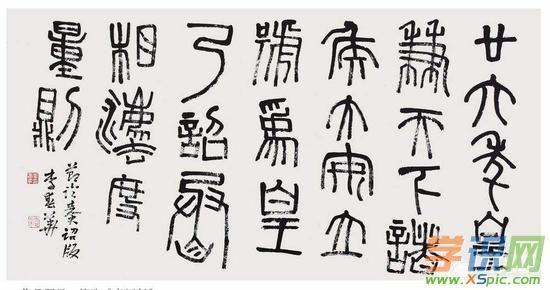 廿六年皇
兼天下諸
侯大安立
號為皇
乃詔
相灋度
量則
節臨秦詔版
李
学识网
www.
XSpic.com